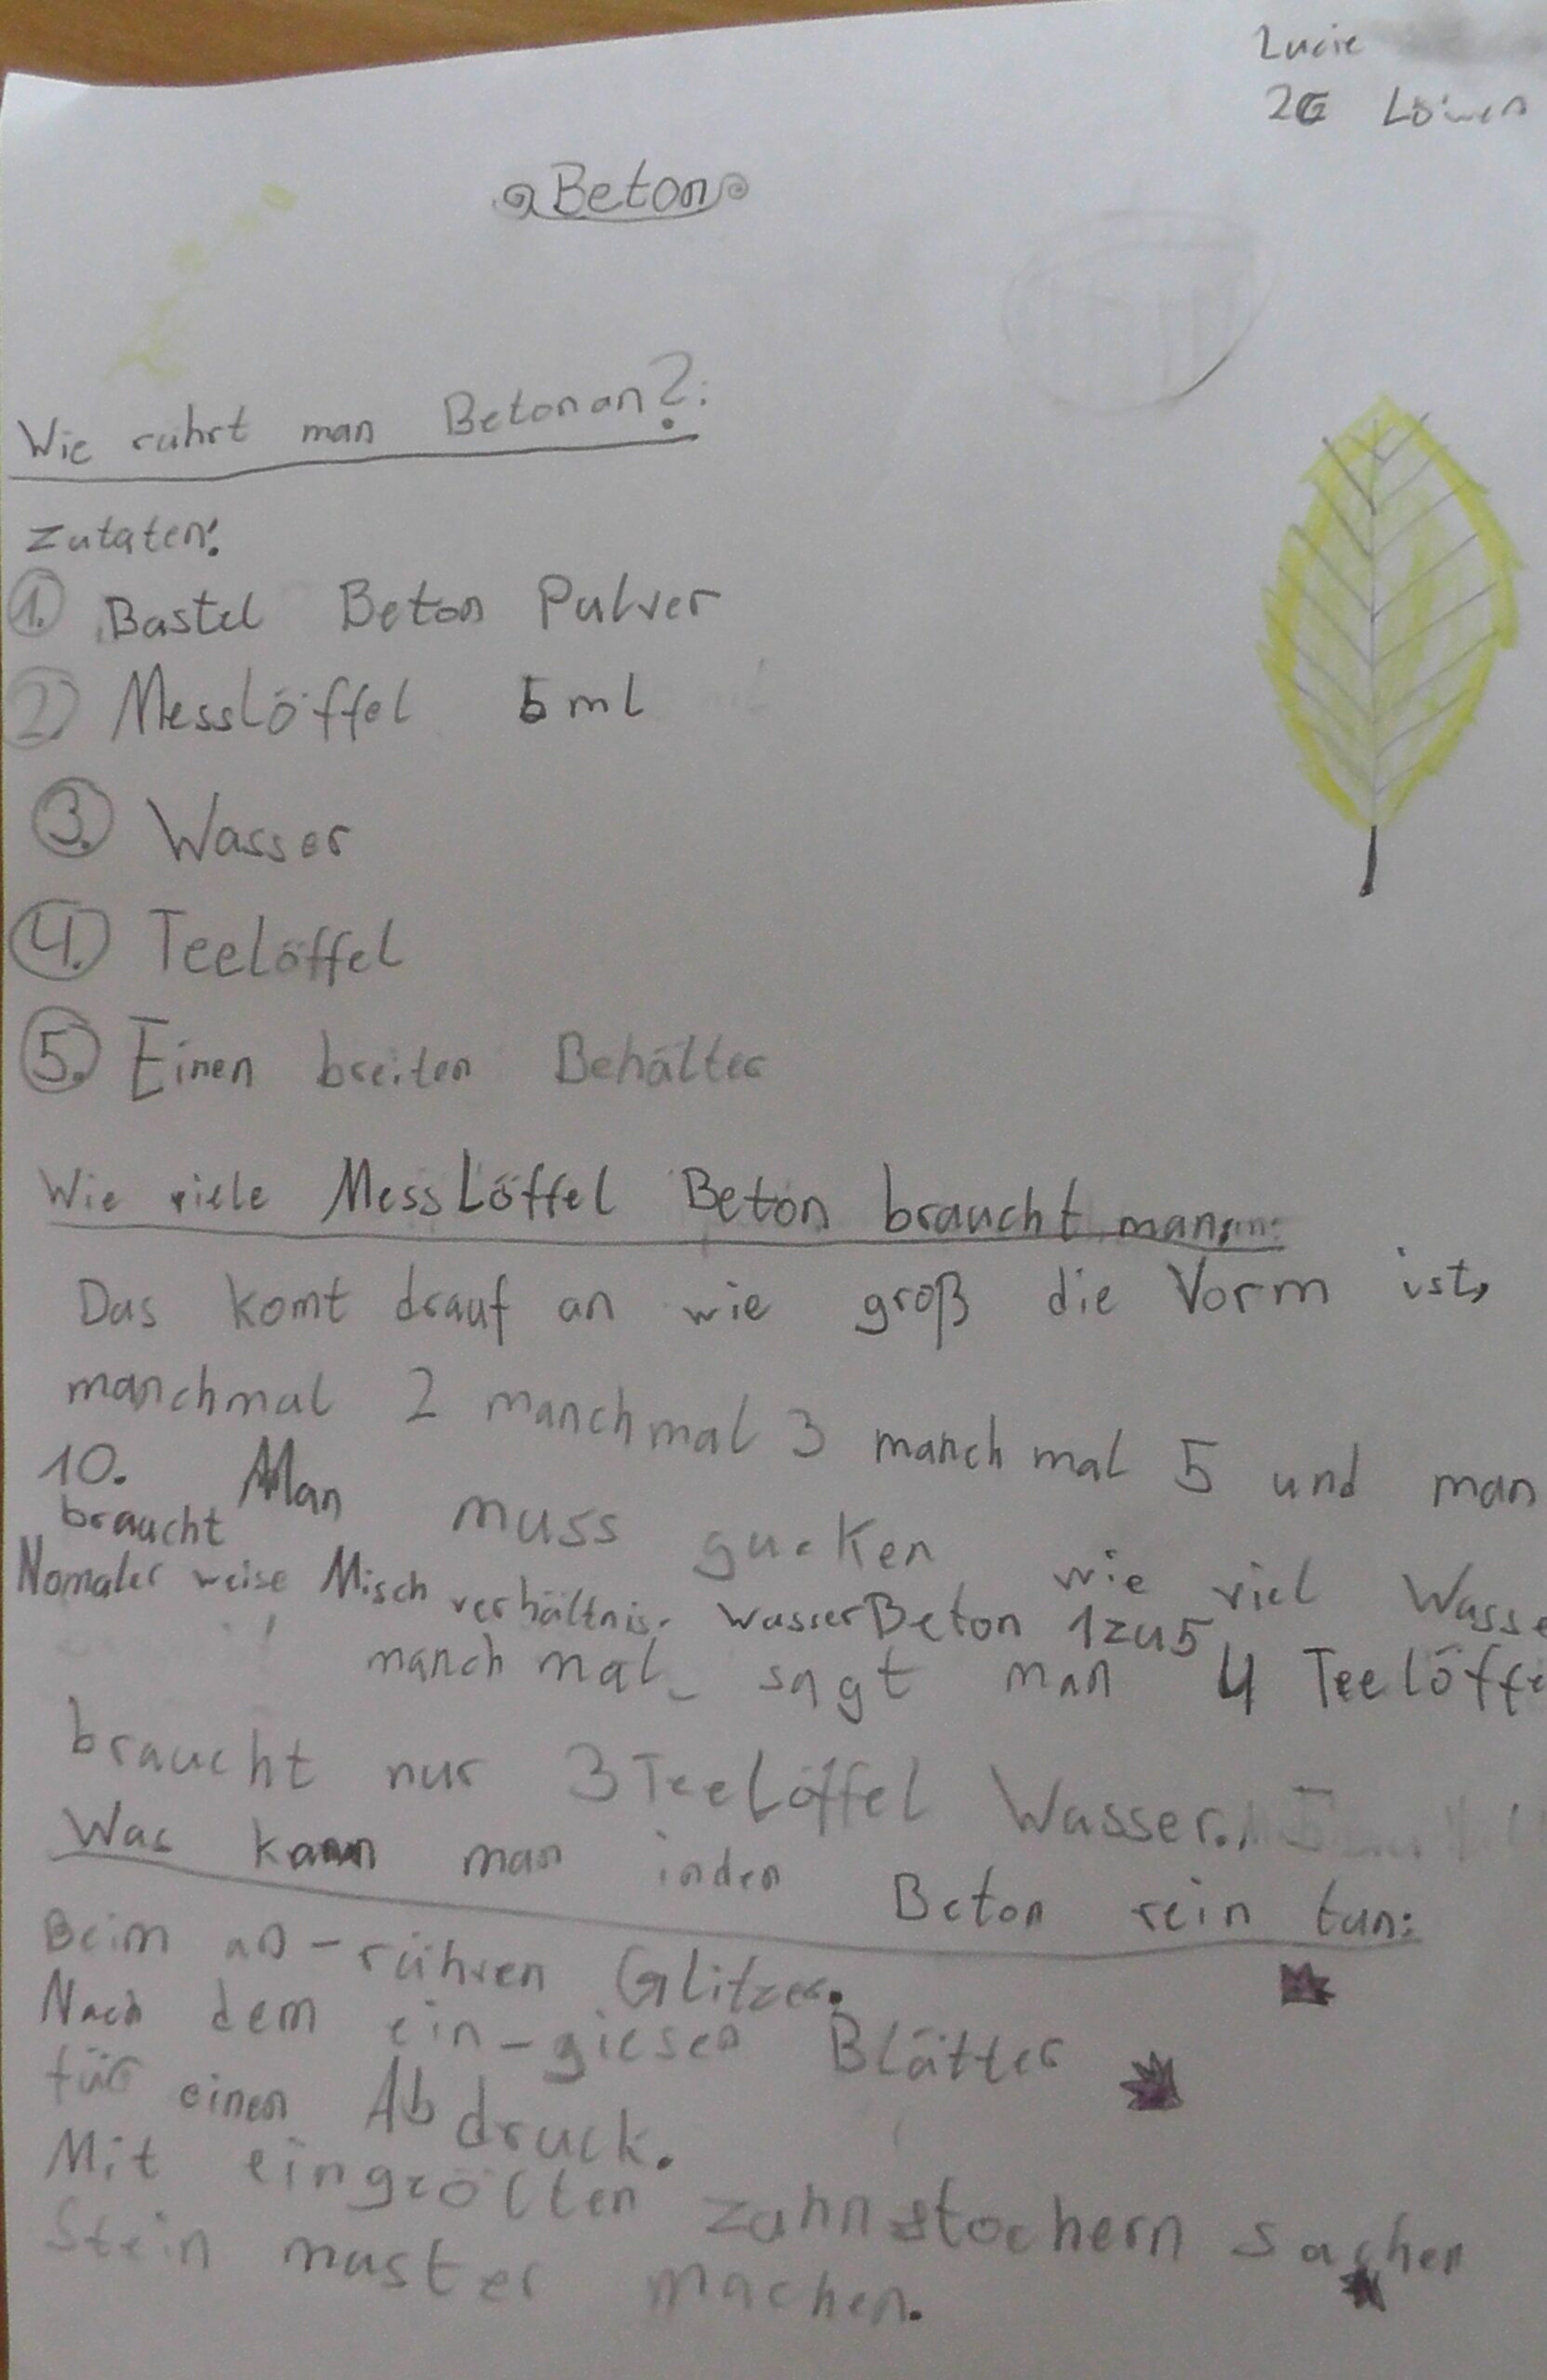 Lucie
2G Löwen
Beton
Wie rührt man Beton an?:
Zutaten:
1. Bastel Beton Pulver
2. Messlöffel 5 ml
3. Wasser
4. Teelöffel
5. Einen breiten Behälter
Wie viele Mess Löffel Beton braucht man
Das komt drauf an wie groß die Vorm ist,
manchmal 2 manchmal 3 manch mal 5 und man
10. Man muss gucken wie viel Wasse
braucht
Nomaler weise Misch verhältnis. wasser Beton 1 zu 5
manch mal sagt man 4 Teelöffe
braucht nur 3 Teelöffel Wasser.
Was kann man in den Beton rein tun:
Beim an-rühren Glitzer.
Nach dem ein-giesen Blätter
für einen Ab druck.
Mit eingeölten zahnstochern sachen
Stein muster machen.